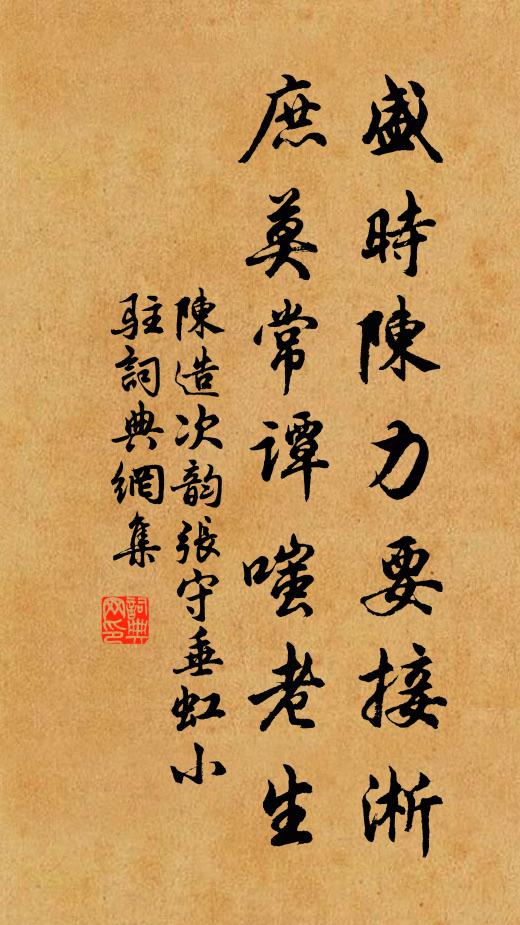 盛時陳力要接淅
庶莫常譚嗤老生
陳造次韵張守垂虹小
駐詞典網集
詞典
网印